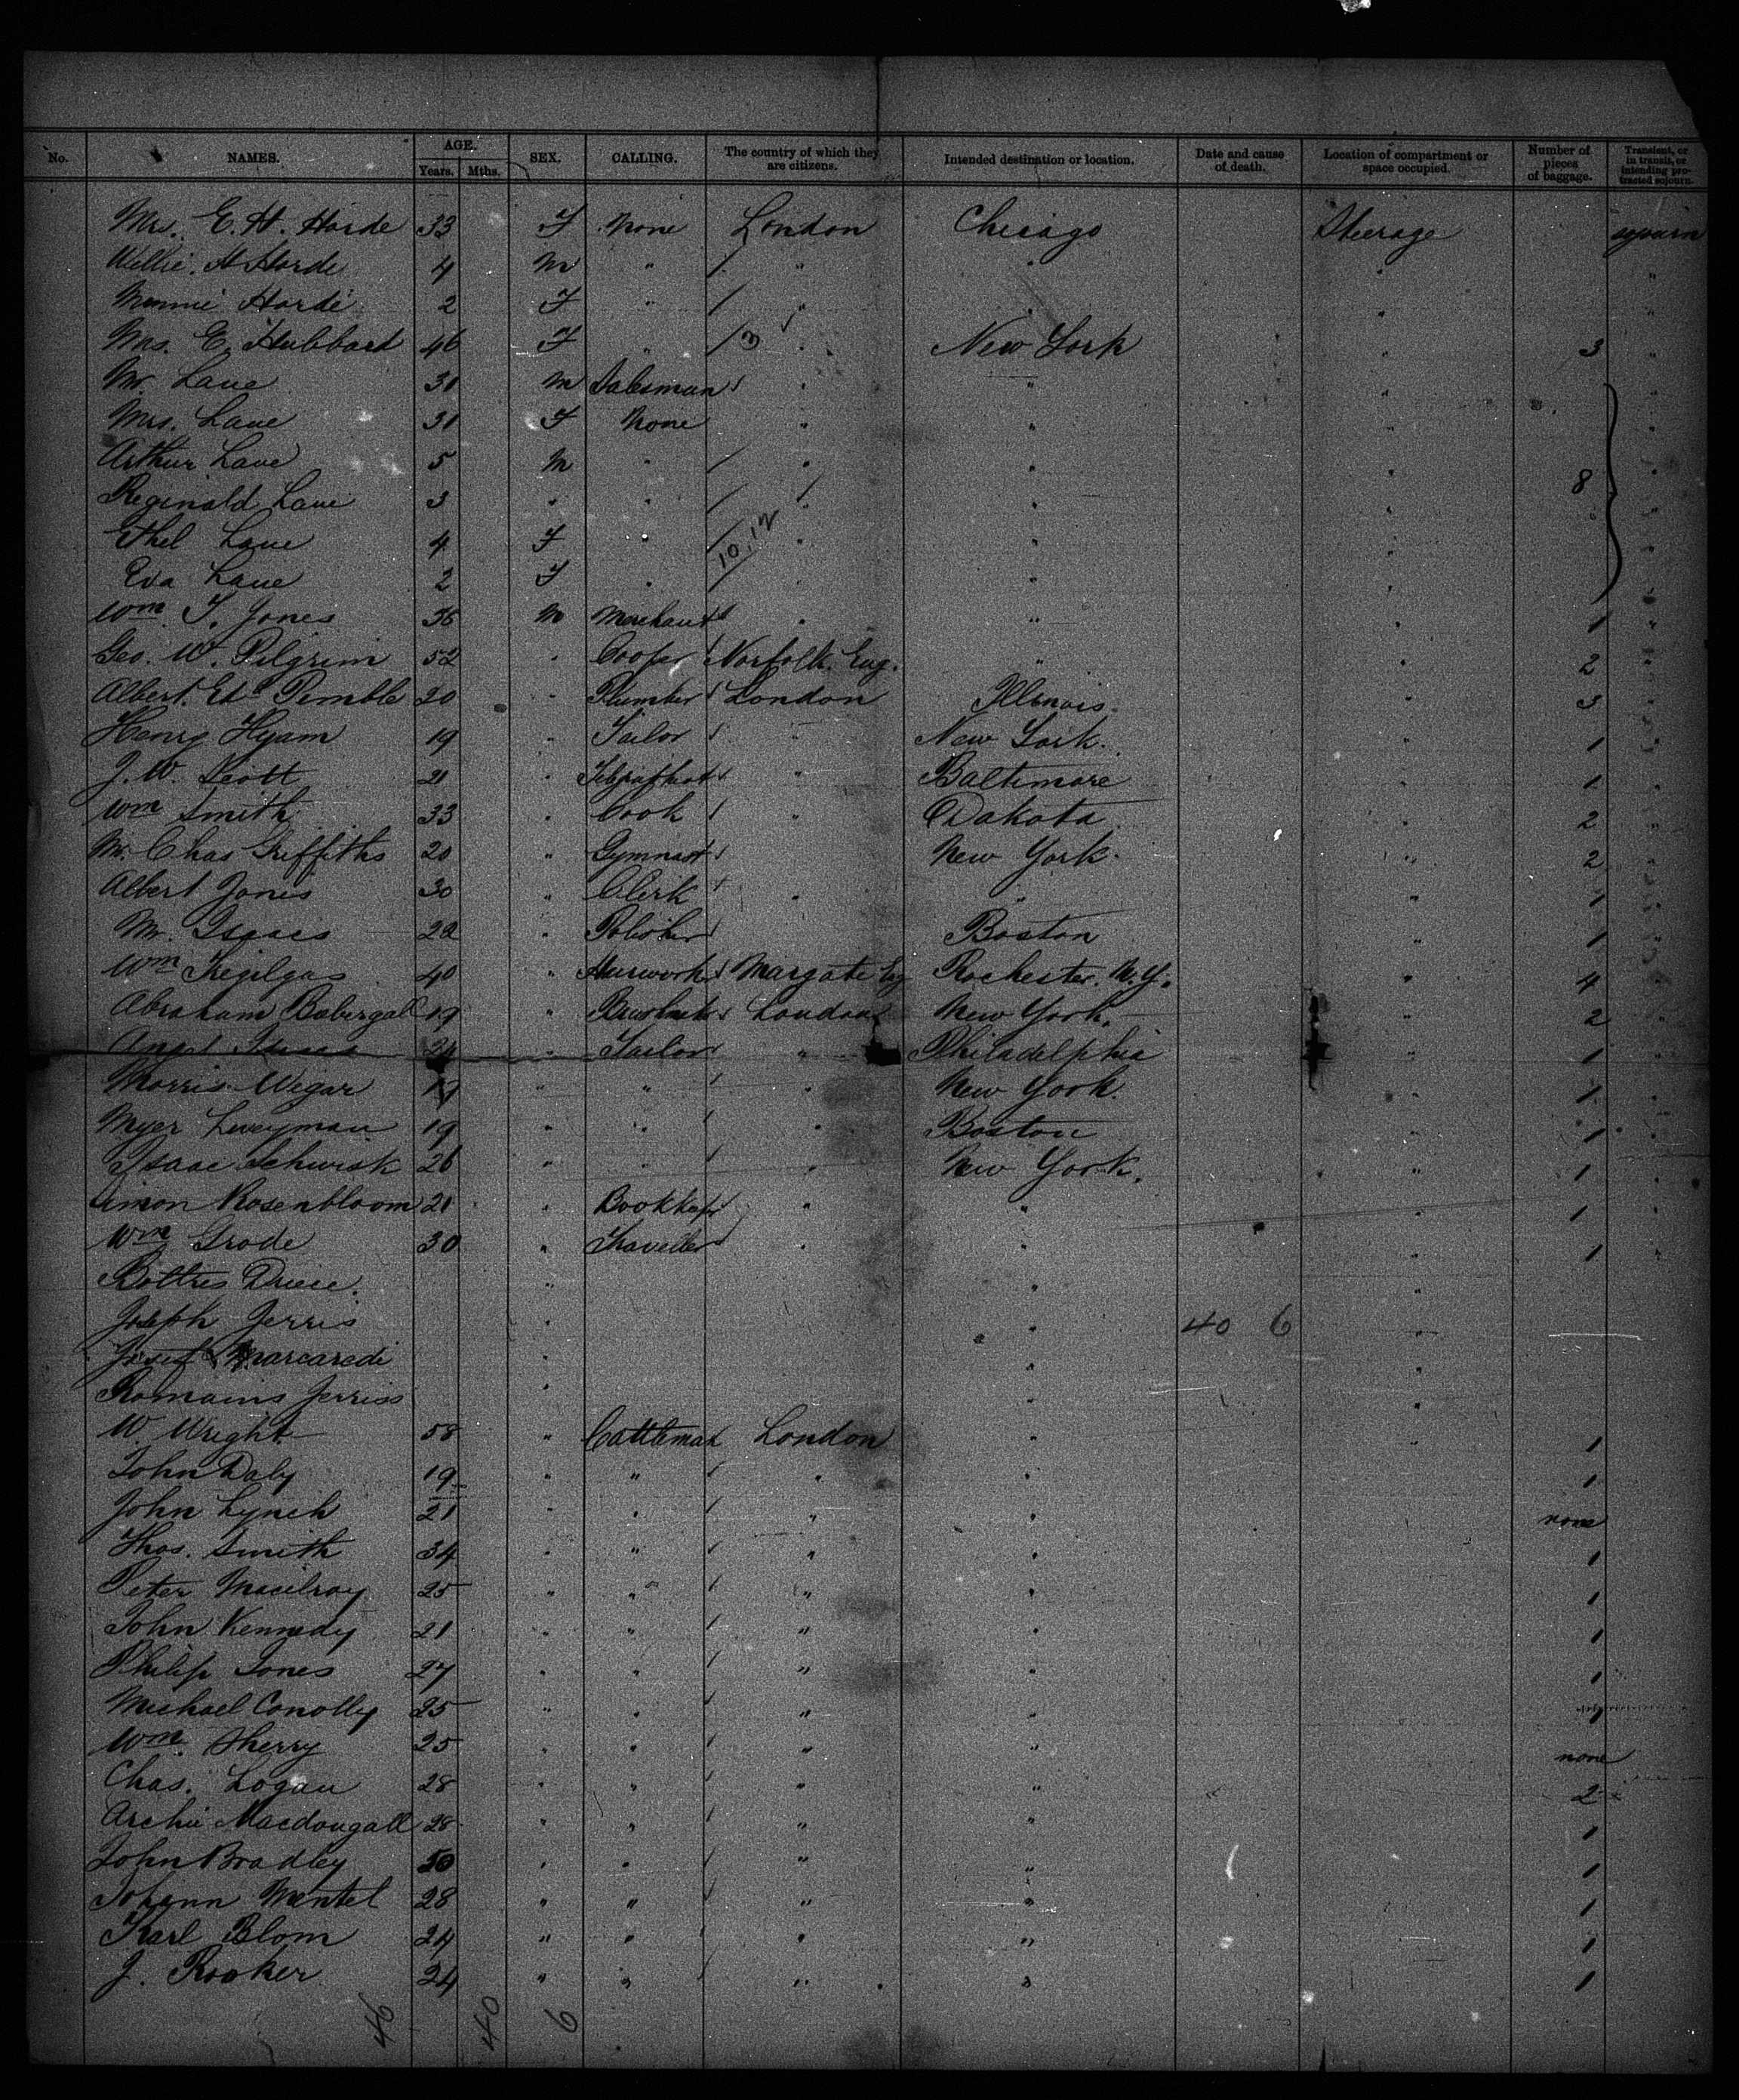 No. NAMES. AGE. Years. Mths. SEX. CALLING. The country of which they are citizens. Intended destination or location. Date and cause of death. Location of compartment or space occupied. Number of pieces of baggage. Transient, or in transit, or intending protracted sojourn.
Mrs. E. H. Horde 33 F None London Chicago Steerage sojourn
Willie. H Horde 4 M " " " " "
Minnie Horde 2 F " " " " "
Mrs. E. Hubbard 46 F " 3 " New York " 3 "
Mr. Lane 31 M Salesman " " " "
Mrs. Lane 31 F None " " " "
Arthur Lane 5 M " " " " "
Reginald Lane 3 " " " " " 8 "
Ethel Lane 4 F " 10,12 " " " "
Eva Lane 2 F " " " " "
Wm. T. Jones 36 M Merchant " " " 1 "
Geo. W. Pilgrim 52 " Cooper Norfolk. Eng. " " 2 "
Albert. Ed Pemble 20 " Plumber London Illinois " 3 "
Henry Hyam 19 " Tailor " New York. " 1 "
J. W. Scott 21 " " Baltimore " 1 "
Wm Smith 33 " Cook " Dakota " 2 "
Mr. Chas Griffiths 20 " Gymnast " New York. " 2 "
Albert Jones 30 " Clerk " " " 1 "
Mr. Isaacs 22 " Polisher Boston " 1 "
Wm 40 " Margate Eng Rochester. N.Y. " 4 "
Abraham 19 " London New York. " 2 "
Angel Isaacs 24 " Tailor " Philadelphia " 1 "
Morris Wegar 19 " " " New York. " 1 "
Myer 19 " " " Boston " 1 "
Isaac 26 " " " New York. " 1 "
Simon Rosenbloom 21 " Bookkeeper " " " 1 "
Wm Grode 30 " Traveller " " " 1 "
" " "
Joseph Jerris " " 40 6 "
" " "
Romains Jerriss " "
W. Wright 58 " Cattleman London " 1
John Daly 19 " " " " 1
John Lynch 21 " " " " none
Thos. Smith 34 " " " " 1
Peter Macilroy 25 " " " " 1
John Kennedy 21 " " " " 1
Philip Jones 27 " " " " 1
Michael Conolly 25 " " " " 1
Wm. Sherry 25 " " " " none
Chas. Logan 28 " " " " 2
Archie Macdougall 28 " " " " 1
John Bradley 50 " " " " 1
Johann Mentel 28 " " " " 1
Karl Blom 24 " " " " 1
J. Rooker 24 " " " " 1
46 40 6